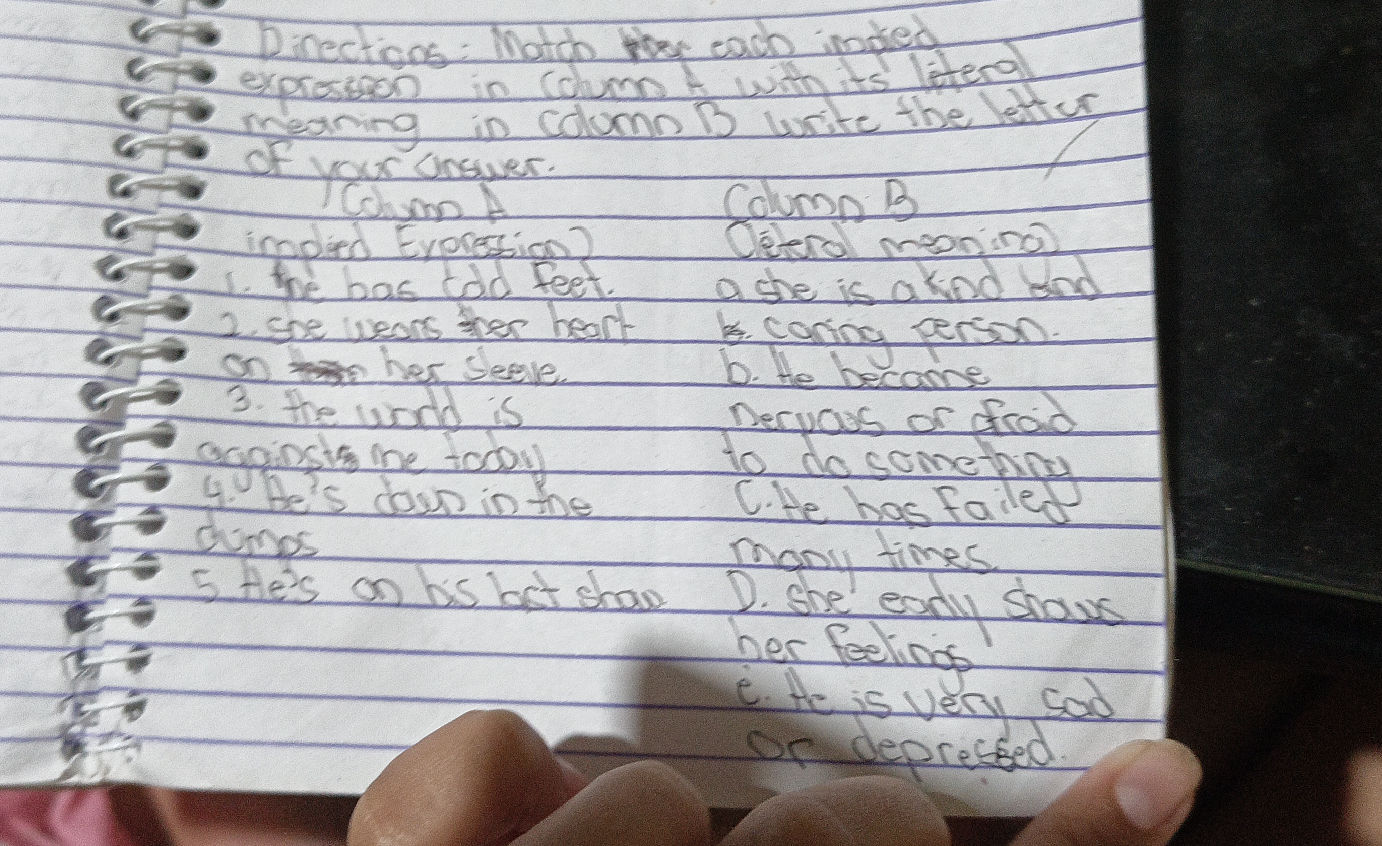 Directions: Match each implied
expression in Column A with its literal
meaning in column B write the letter
of your answer.
Column A
implied Expression)
1. the has cold feet.
2. she wears her heart
on her sleeve.
3. the world is
against me today
4. He's down in the
dumps
5 He's on his last
Column B
literal meaning)
a she is a kind and
caring person.
b. He became
nervous or afraid
to do something
C. He has failed
many times
D. she early shows
her feelings
e. He is very sad
or depressed.